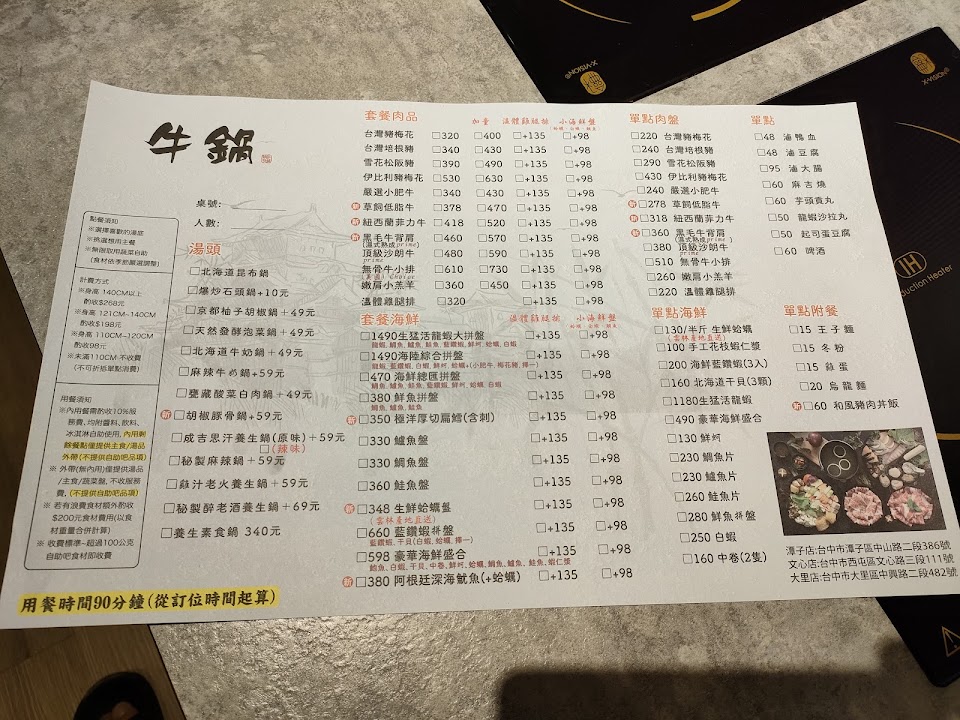 牛鍋
桌號:
人數:
點餐須知
※選擇喜歡的湯底
※挑選想用主餐
※無限取用蔬菜自助
(食材依季節嚴選調整)
計費方式
※身高 140CM以上
酌收$268元
※身高 121CM~140CM
酌收$198元
※身高 110CM~120CM
酌收98元
※未滿110CM-不收費
(不可折抵單點消費)
用餐須知
※內用餐需酌收10%服
務費, 均附醬料、飲料、
冰淇淋自助使用, 內用剩
餘餐點僅提供主食/湯品
外帶(不提供自助吧品項)
※ 外帶(無內用)僅提供湯品
/主食/蔬菜盤, 不收服務
費, (不提供自助吧品項)
※ 若有浪費食材額外酌收
$200元食材費用(以食
材重量合併計算)
※ 收費標準-超過100公克
自助吧食材即收費
用餐時間90分鐘(從訂位時間起算)
湯頭
□北海道昆布鍋
□爆炒石頭鍋+10元
□京都柚子胡椒鍋+49元
□天然發酵泡菜鍋+49元
□北海道牛奶鍋+49元
□麻辣牛め鍋+59元
□甕藏酸菜白肉鍋+49元
新□胡椒豚骨鍋+59元
□成吉思汗養生鍋(原味)+59元
□(辣味)
□秘製麻辣鍋+59元
□雞汁老火養生鍋+59元
□秘製醉老酒養生鍋+69元
□養生素食鍋 340元
套餐肉品 加量 溫體雞腿排 小海鮮盤
台灣豬梅花 □320 □400 □+135 □+98
台灣培根豬 □340 □430 □+135 □+98
雪花松阪豬 □390 □490 □+135 □+98
伊比利豬梅花 □530 □630 □+135 □+98
嚴選小肥牛 □340 □430 □+135 □+98
新 草飼低脂牛 □378 □470 □+135 □+98
新 紐西蘭菲力牛 □418 □520 □+135 □+98
新 黑毛牛背肩 □460 □570 □+135 □+98
(濕式熟成prime)
頂級沙朗牛 □480 □590 □+135 □+98
prime
無骨牛小排 □610 □730 □+135 □+98
(美國) Choice
嫩肩小羔羊 □360 □450 □+135 □+98
溫體雞腿排 □320 □+135 □+98
套餐海鮮 溫體雞腿排 小海鮮盤
□1490生猛活龍蝦大拼盤 □+135 □+98
□1490海陸綜合拼盤 □+135 □+98
□470 海鮮總匯拼盤 □+135 □+98
□380 鮮魚拼盤 □+135 □+98
鯛魚, 鱸魚, 鮭魚
新□350 極洋厚切扁鱈(含刺) □+135 □+98
□330 鱸魚盤 □+135 □+98
□330 鯛魚盤 □+135 □+98
□360 鮭魚盤 □+135 □+98
新□348 生鮮蛤蠣盤 □+135 □+98
(雲林產地直送)
□660 藍鑽蝦拼盤 □+135 □+98
藍鑽蝦, 干貝(白蝦, 蛤蠣, 擇一)
□598 豪華海鮮盛合 □+135 □+98
新□380 阿根廷深海魷魚(+蛤蠣) □+135 □+98
單點肉盤
□220 台灣豬梅花
□240 台灣培根豬
□290 雪花松阪豬
□430 伊比利豬梅花
□240 嚴選小肥牛
新□278 草飼低脂牛
新□318 紐西蘭菲力牛
新□360 黑毛牛背肩
(濕式熟成prime)
□380 頂級沙朗牛
prime
□510 無骨牛小排
□260 嫩肩小羔羊
□220 溫體雞腿排
單點海鮮
□130/半斤 生鮮蛤蠣
(雲林產地直送)
□100 手工花枝蝦仁漿
□200 海鮮藍鑽蝦(3入)
□160 北海道干貝(3顆)
□1180生猛活龍蝦
□490 豪華海鮮盛合
□130 鮮蚵
□230 鯛魚片
□230 鱸魚片
□260 鮭魚片
□280 鮮魚拼盤
□250 白蝦
□160 中卷(2隻)
單點
□48 滷鴨血
□48 滷豆腐
□95 滷大腸
□60 麻吉燒
□60 芋頭貢丸
□50 龍蝦沙拉丸
□50 起司蛋豆腐
□60 啤酒
單點附餐
□15 王子麵
□15 冬粉
□15 雞蛋
□20 烏龍麵
新□60 和風豬肉丼飯
潭子店:台中市潭子區中山路二段386號
文心店:台中市西屯區文心路三段111號
大里店:台中市大里區中興路二段482號
X-VISION®
X-VISION®
IH
Induction Heater